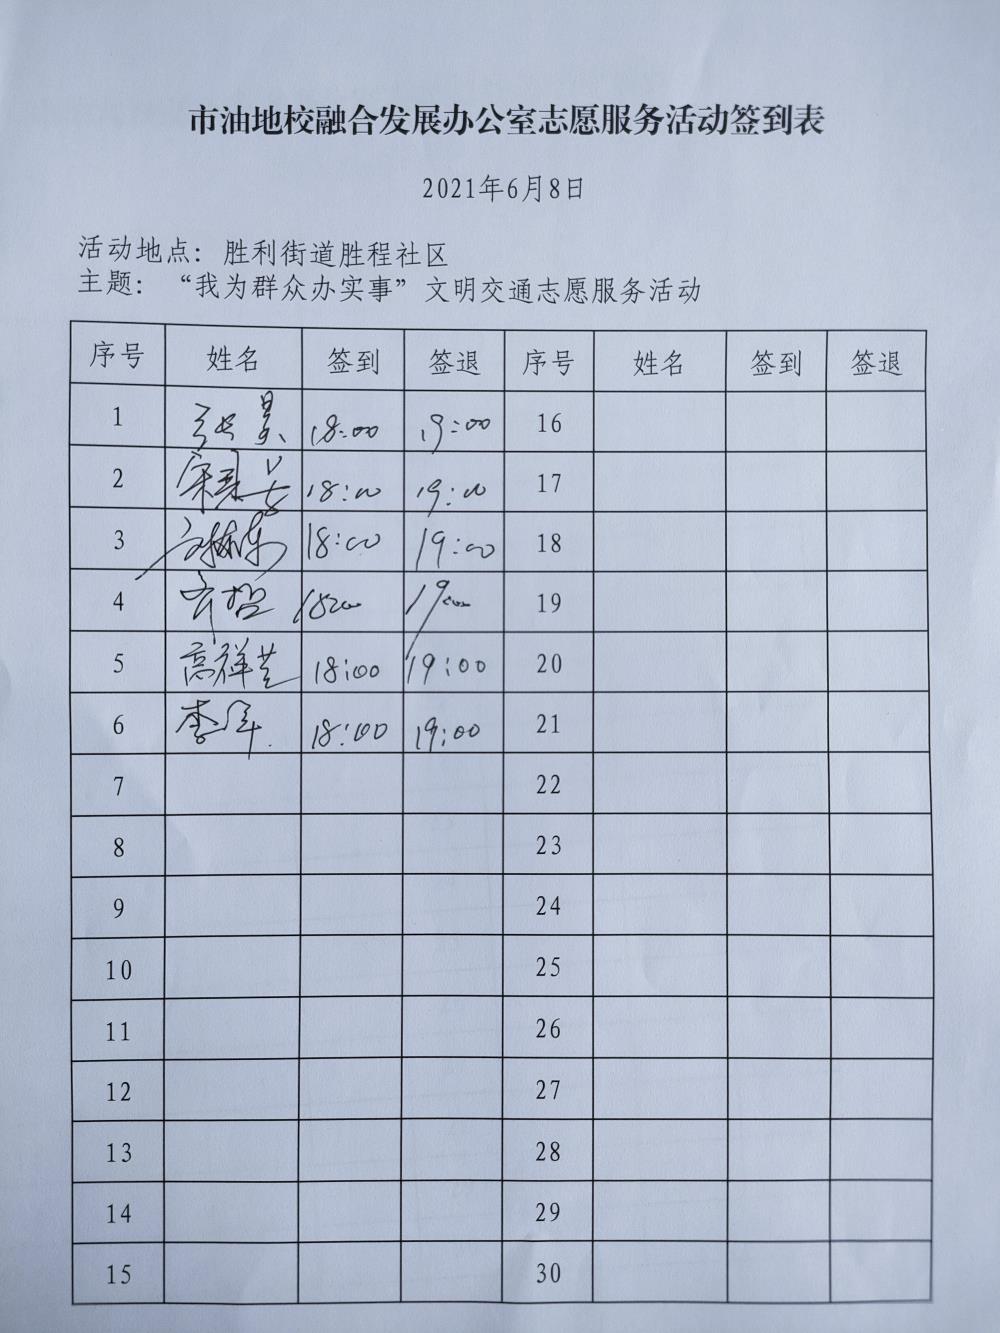 市油地校融合发展办公室志愿服务活动签到表
2021年6月8日
活动地点：胜利街道胜程社区
主题：“我为群众办实事”文明交通志愿服务活动
序号 姓名 签到 签退 序号 姓名 签到 签退
1 18:00 19:00 16
2 18:00 19:00 17
3 刘栋 18:00 19:00 18
4 齐 1800 1900 19
5 高祥芝 18:00 19:00 20
6 李军 18:00 19:00 21
7 22
8 23
9 24
10 25
11 26
12 27
13 28
14 29
15 30